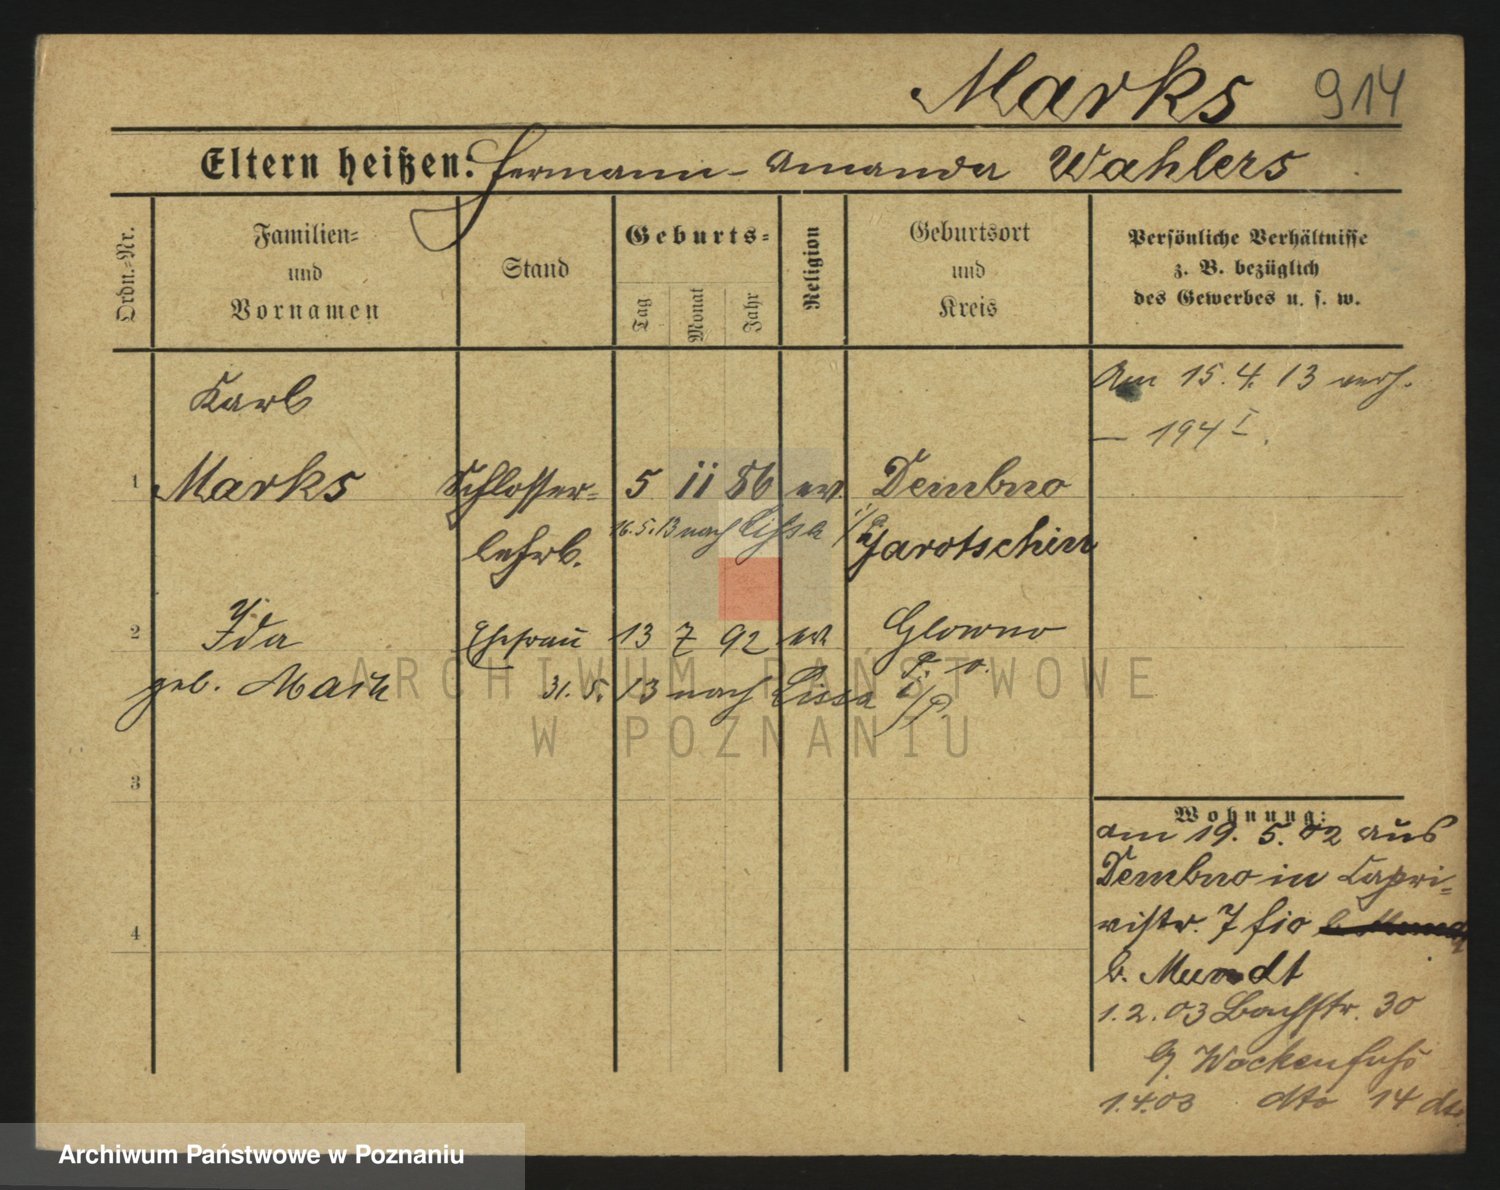 Marks 914
Eltern heißen: Hermann - Amanda Wahlers
Ordn.-Nr.
Familien-
und
Vornamen
Stand
Geburts-
Tag
Monat
Jahr
Religion
Geburtsort
und
Kreis
Persönliche Verhältnisse
z. B. bezüglich
des Gewerbes u. s. w.
Am 15.4.13 verh.
— 194 I.
Karl
1 Marks Schlosser- 5 11 86 ev. Dembno
lehrl. 16.5.13 nach Lissa i/P Jarotschin
2 Ida Ehefrau 13 7 92 ev. Glowno
P. O.
geb. 31.5.13 nach Lissa i/P.
3
4
Wohnung:
am 19.5.02 aus
Dembno in Capri-
vistr. 7
b. Mundt
1.2.03 Bachstr. 30
b. Wackenfuhs
1.4.03 dto 14
ARCHIWUM PAŃSTWOWE
W POZNANIU
Archiwum Państwowe w Poznaniu